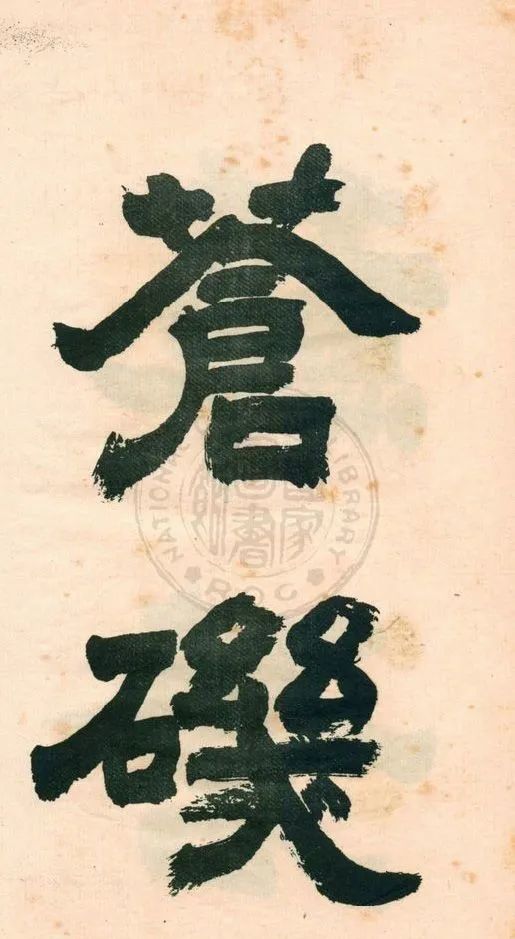 蒼
磯
NATIONAL
LIBRARY
R.O.C.
國家圖書館